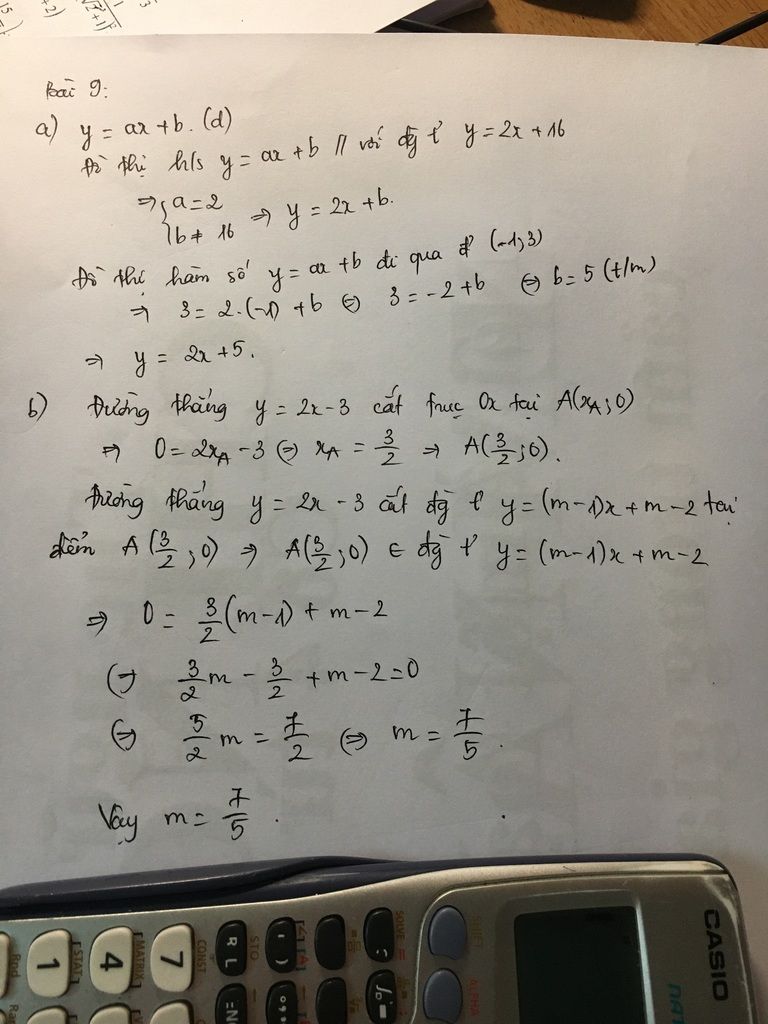 Bài 9:
a) y = ax + b. (d)
Đồ thị h/s y = ax + b // với đg t' y = 2x + 16
⇒ { a = 2
b ≠ 16 ⇒ y = 2x + b.
Đồ thị hàm số y = ax + b đi qua đ' (-1; 3)
⇒ 3 = 2.(-1) + b ⇔ 3 = -2 + b ⇔ b = 5 (t/m)
⇒ y = 2x + 5.
b) Đường thẳng y = 2x - 3 cắt trục Ox tại A(x_A; 0)
⇒ 0 = 2x_A - 3 ⇔ x_A = 3/2 ⇒ A(3/2; 0).
Đường thẳng y = 2x - 3 cắt đg t' y = (m-1)x + m - 2 tại
điểm A(3/2; 0) ⇒ A(3/2; 0) ∈ đg t' y = (m-1)x + m - 2
⇒ 0 = 3/2 (m-1) + m - 2
⇔ 3/2 m - 3/2 + m - 2 = 0
⇔ 5/2 m = 7/2 ⇔ m = 7/5.
Vậy m = 7/5.
CASIO
SHIFT
ALPHA
SOLVE =
CONST
7
[MATRIX]
4
[STAT]
1
STO
RCL
Rnd